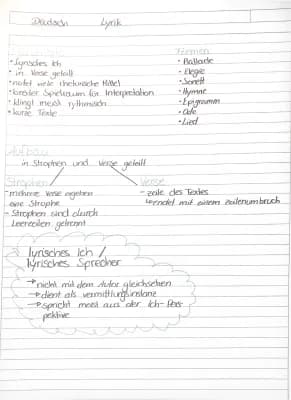 Deutsch Lyrik
Merkmale
• lyrisches Ich
• in Verse geteilt
• nutzt viele rhetorische Mittel
• breiter Spielraum für Interpretation
• klingt meist rythmisch
• kurze Texte
Formen
• Ballade
• Elegie
• Sonett
• Hymne
• Epigramm
• Ode
• Lied
Aufbau
in Strophen und Verse geteilt
Strophen
- mehrere Verse ergeben
eine Strophe
- Strophen sind durch
Leerzeilen getrennt
Verse
- Zeile des Textes
↳ endet mit einem Zeilenumbruch
lyrisches Ich /
lyrisches Sprecher
→ nicht mit dem Autor gleichsehen
→ dient als Vermittlungsinstanz
→ spricht meist aus der Ich-Pers
pektive